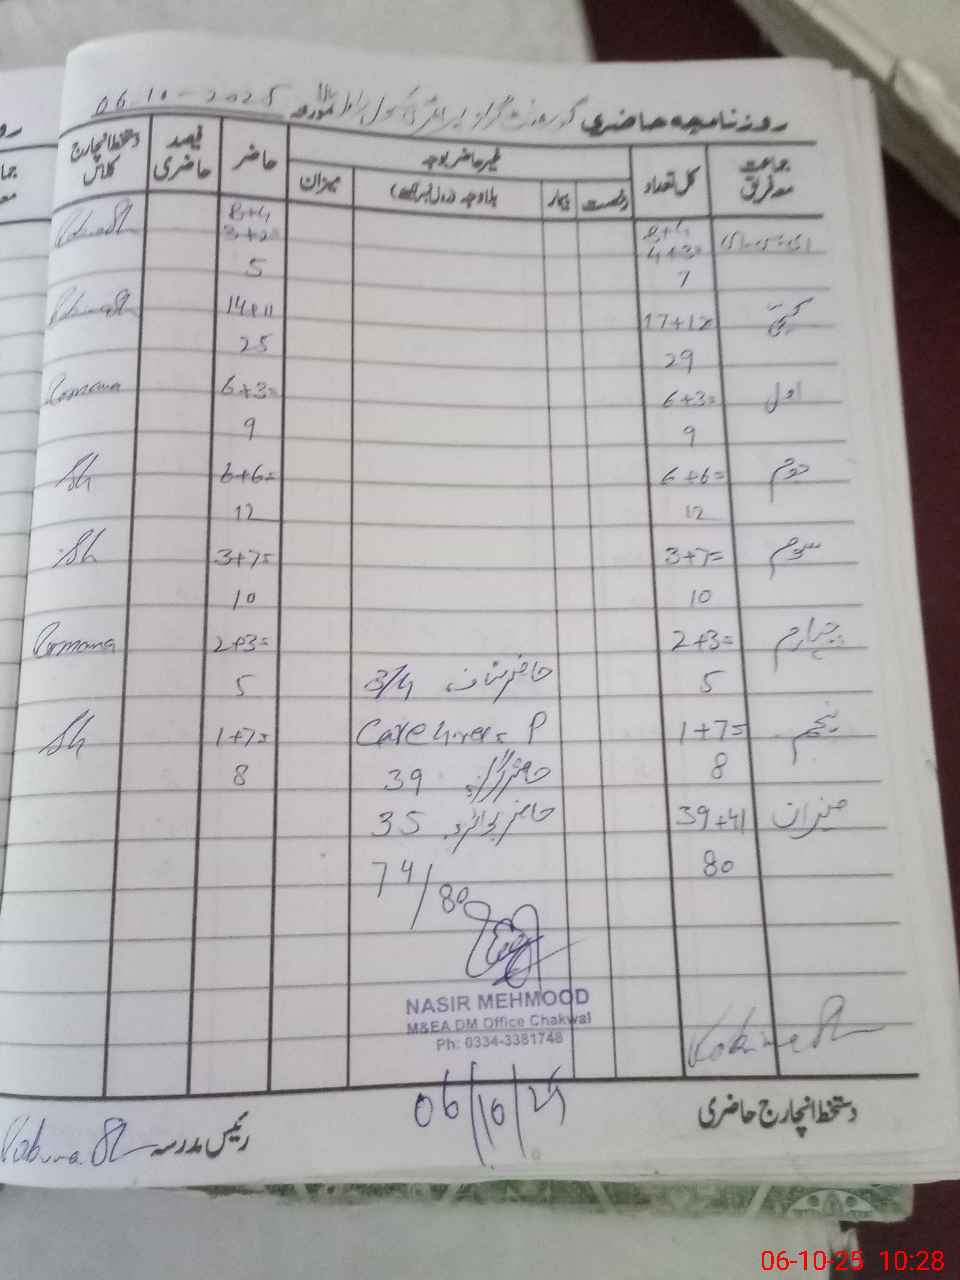 روزنامچہ حاضری گورنمنٹ گرلز پرائمری سکول مورخہ 06-10-2025
جماعت معہ فریق کل تعداد غیر حاضر بوجہ حاضر فیصد حاضری دستخط انچارج کلاس
رخصت بیمار بلاوجہ میزان
ای سی سی ای B+G B+G
4+3= 3+2= Robina
7 5
کچی 17+12 14+11 Robina
29 25
اول 6+3= 6+3= Romana
9 9
دوم 6+6= 6+6= Sh
12 12
سوم 3+7= 3+7= Sh
10 10
چہارم 2+3= 2+3= Romana
5 حاضر سٹاف 3/4 5
پنجم 1+7= Care giver = P 1+7= Sh
8 حاضر گرلز 39 8
میزان 39+41 حاضر بوائز 35
80 74/80
NASIR MEHMOOD
M&EA DM Office Chakwal
Ph: 0334-3381748
06/10/25
دستخط انچارج حاضری
رئیس مدرسہ Robina
06-10-25 10:28